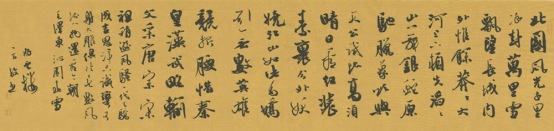 北國風光千里
冰封萬里雪
飄望長城内
外惟餘莽莽大
河上下頓失滔滔
山舞銀蛇原
馳蠟象欲與
天公試比高須
晴日看紅裝
素裹分外妖
嬈江山如此多嬌
引無數英雄
競折腰惜秦
皇漢武略輸
文采唐宗宋
祖稍遜風騷一代天驕
成吉思汗只識彎弓
射大雕俱往矣數風
流人物還看今朝
毛澤東沁園春雪